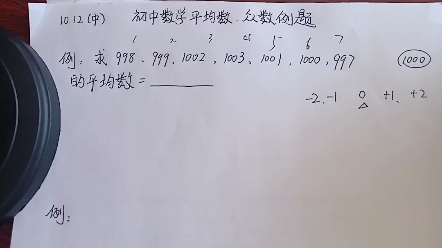 10.12(中) 初中数学平均数.众数例题
1 2 3 4 5 6 7
例:求998、999、1002、1003、1001、1000、997 1000
的平均数=______
-2、-1 0 +1、+2
△
例: